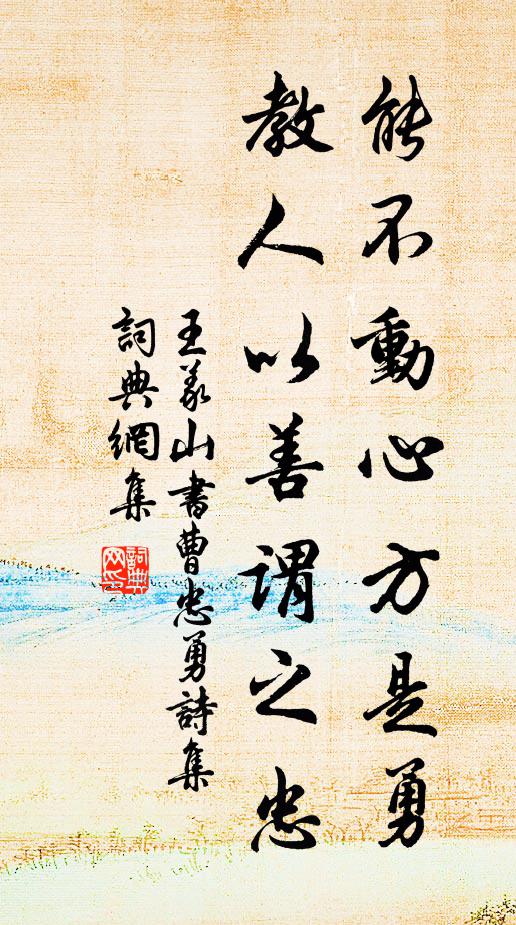 能不動心方是勇
教人以善謂之忠
王義山書曹忠勇詩集
詞典網集
詞典網印